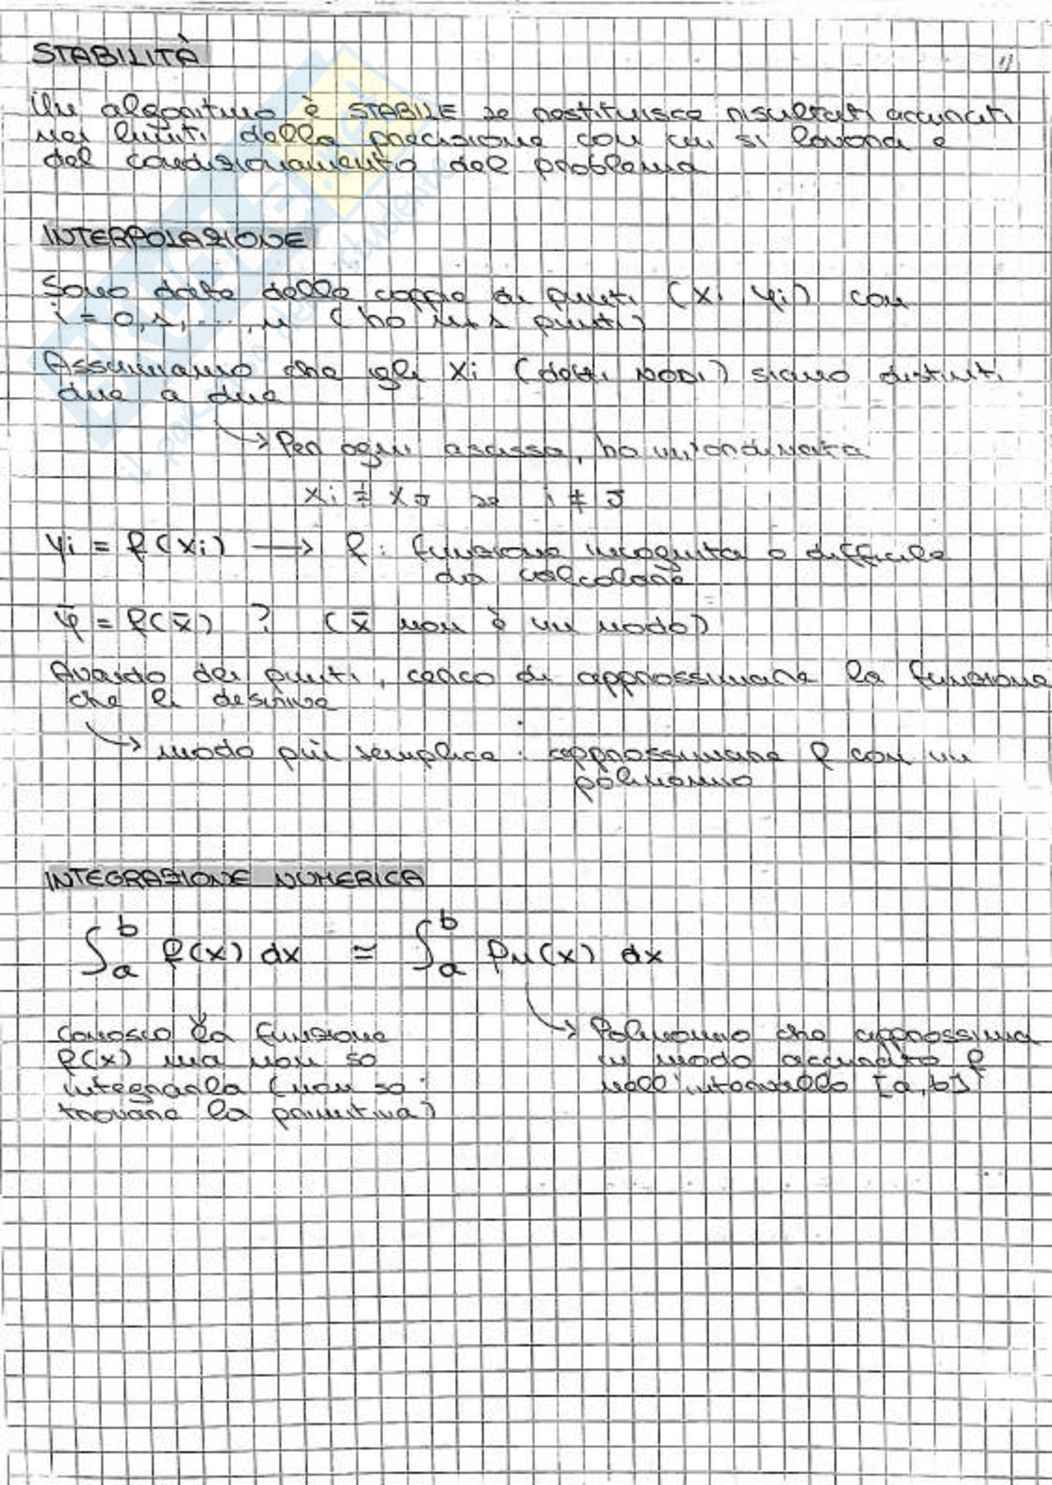 STABILITÀ
Un algoritmo è STABILE se restituisce risultati accurati
nei limiti della precisione con cui si lavora e
del condizionamento del problema
INTERPOLAZIONE
Sono date delle coppie di punti (xi, yi) con
i = 0,1,...,n (ho n+1 punti)
Assumiamo che gli xi (detti NODI) siano distinti
due a due
→ Per ogni ascissa, ho un'ordinata
xi ≠ xJ se i ≠ J
yi = f(xi) → f: funzione incognita o difficile
da calcolare
ȳ = f(x̄) ? (x̄ non è un nodo)
Avendo dei punti, cerco di approssimare la funzione
che li descrive
→ modo più semplice: approssimare f con un
polinomio
INTEGRAZIONE NUMERICA
∫ₐᵇ f(x) dx ≃ ∫ₐᵇ pn(x) dx
Conosco la funzione
f(x) ma non so
integrarla (non so
trovare la primitiva)
→ Polinomio che approssima
in modo accurato f
nell'intervallo [a,b]